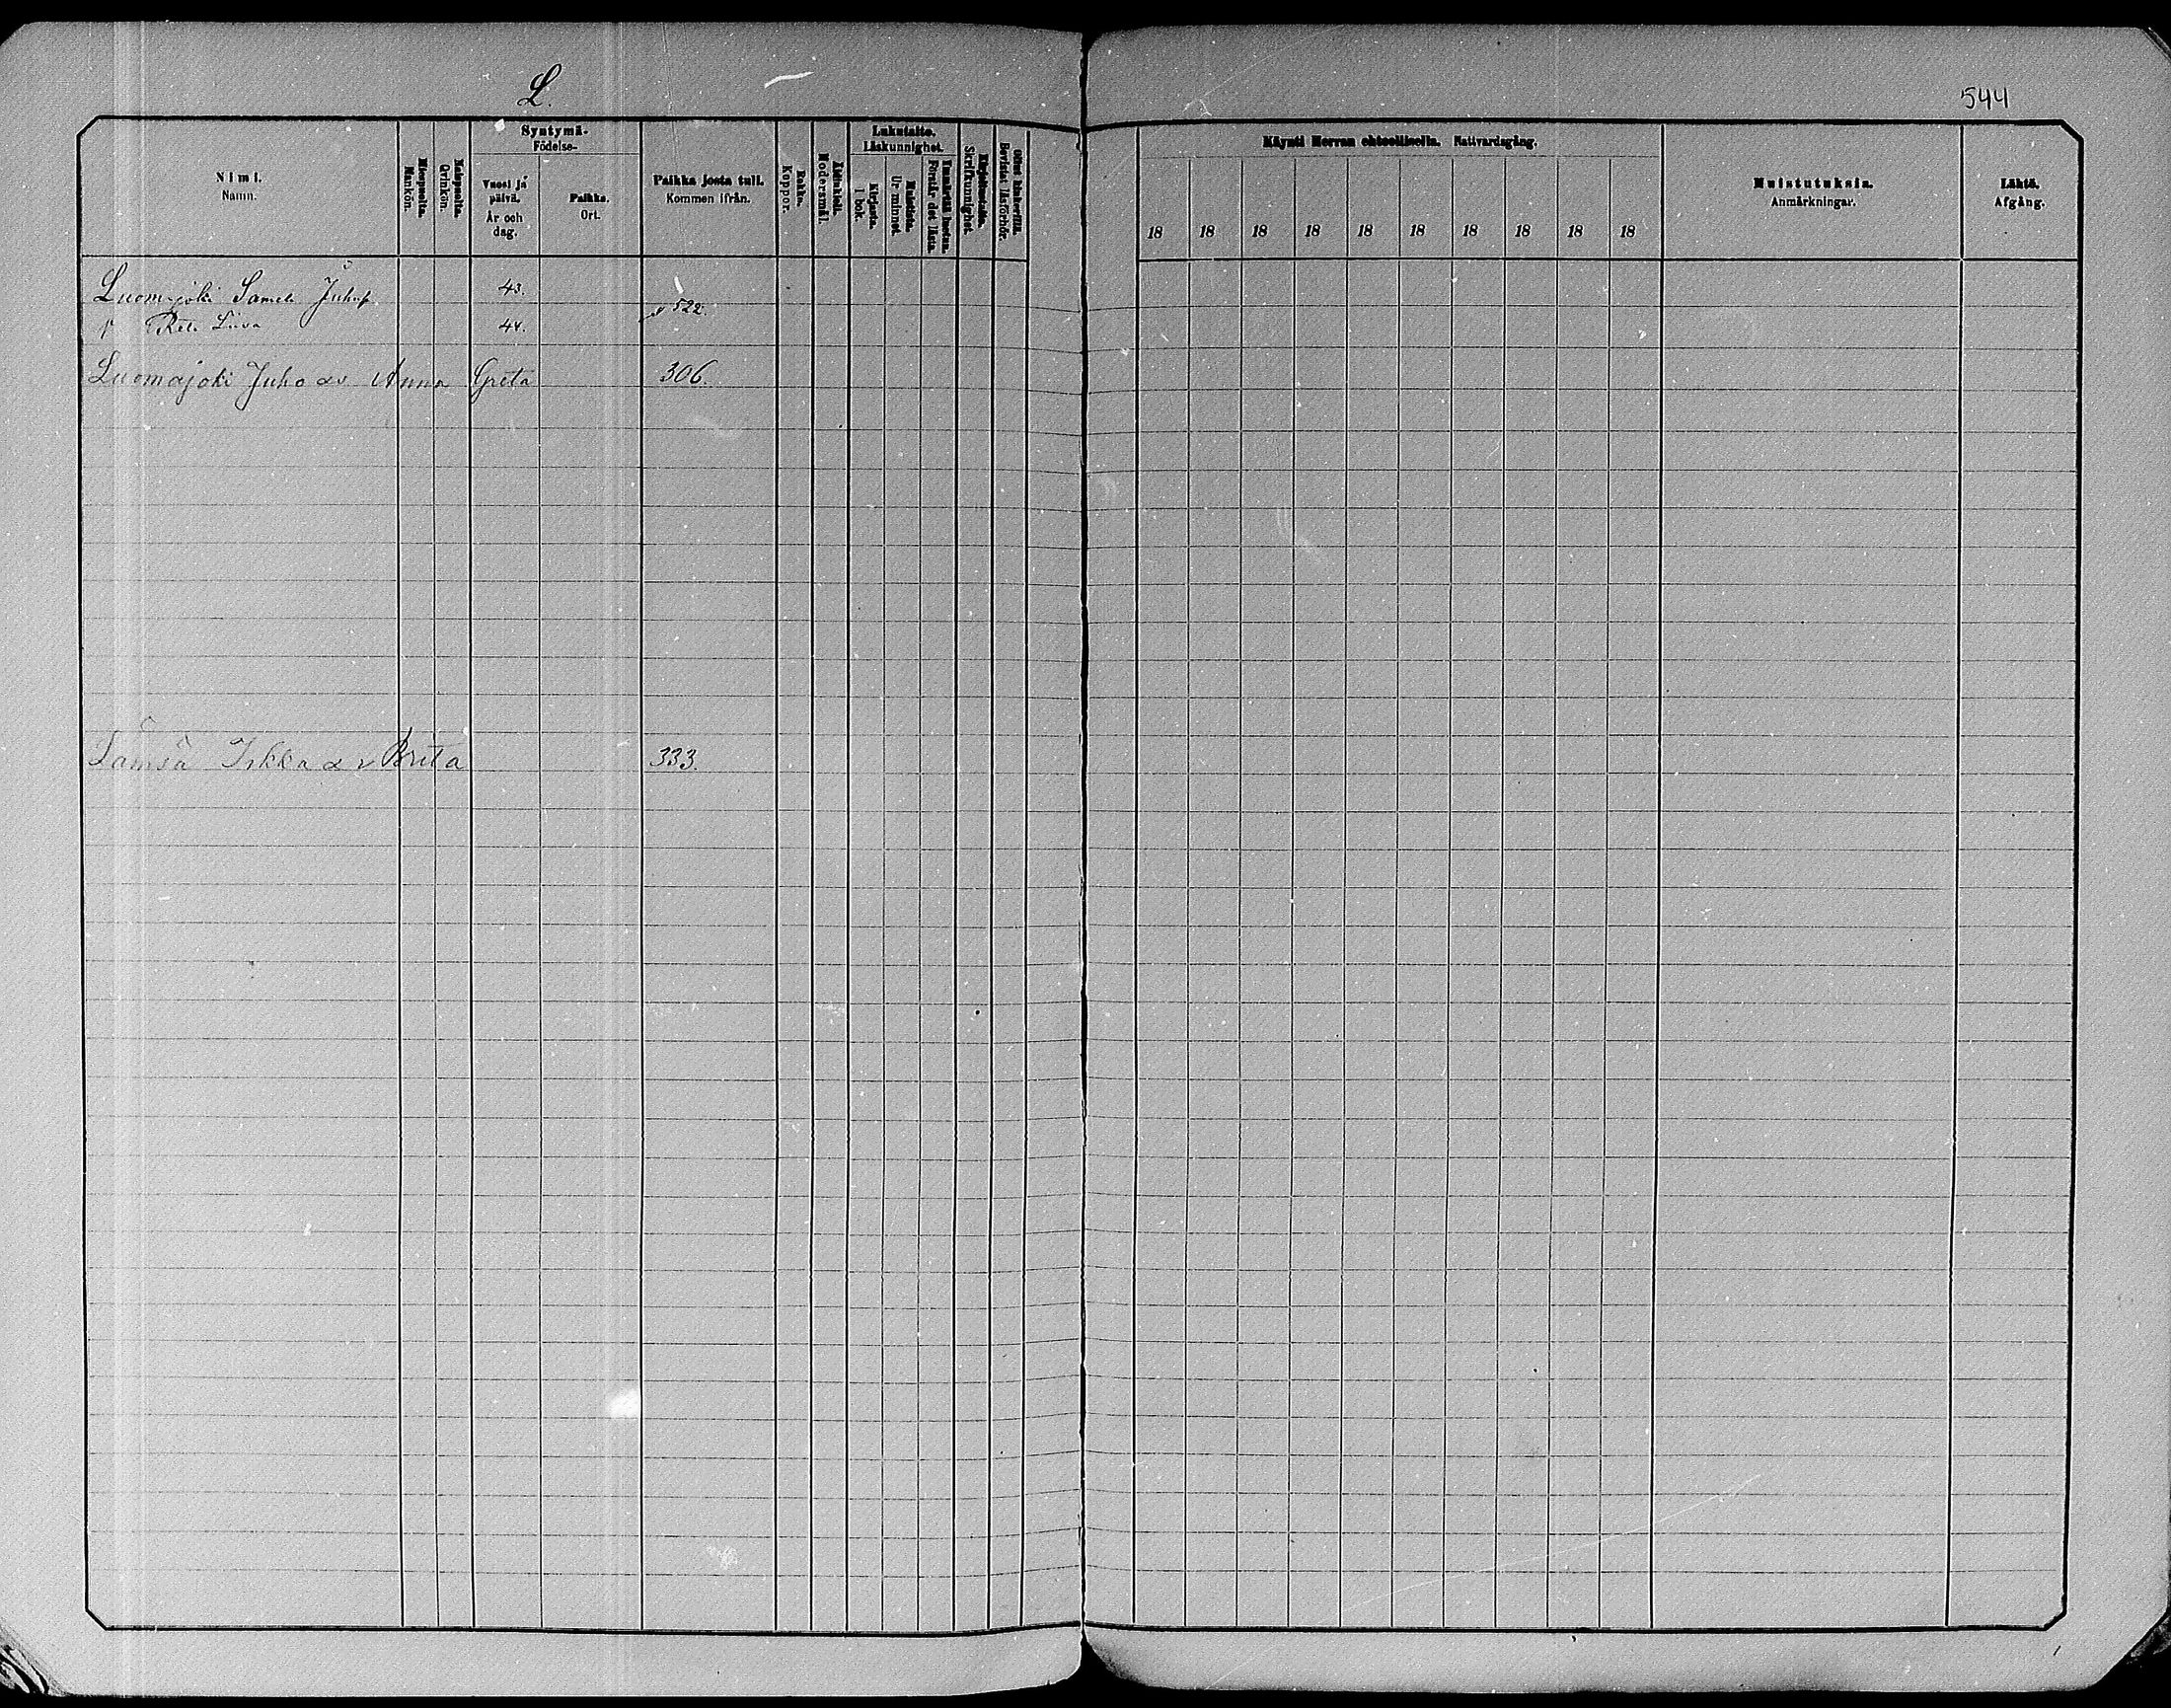 L.
544
Nimi.
Namn.
Miespuolia.
Mankön.
Vaispuolia.
Qvinkön.
Syntymä-
Födelse-
Vuosi ja päivä.
År och dag.
Paikka.
Ort.
Paikka josta tuli.
Kommen ifrån.
Rokko.
Koppor.
Äidinkieli.
Modersmål.
Lukutaito.
Läskunnighet.
Kirjasta.
I bok.
Muistista.
Ur minnet
Ymmärtää luetun.
Förstår det lästa.
Kirjoitustaito.
Skrifkunnighet.
Ollut kinkerillä.
Bevistat läsförhör.
Käynti Herran ehtoollisella. Nattvardsgång.
18 18 18 18 18 18 18 18 18 18
Muistutuksia.
Anmärkningar.
Lähtö.
Afgång.
Luomajoki Sameli Juhop. 43.
522.
Liisa 44.
Luomajoki Juho & v. Anna Greta 306.
Lämsä Iikka & v Brita 333.